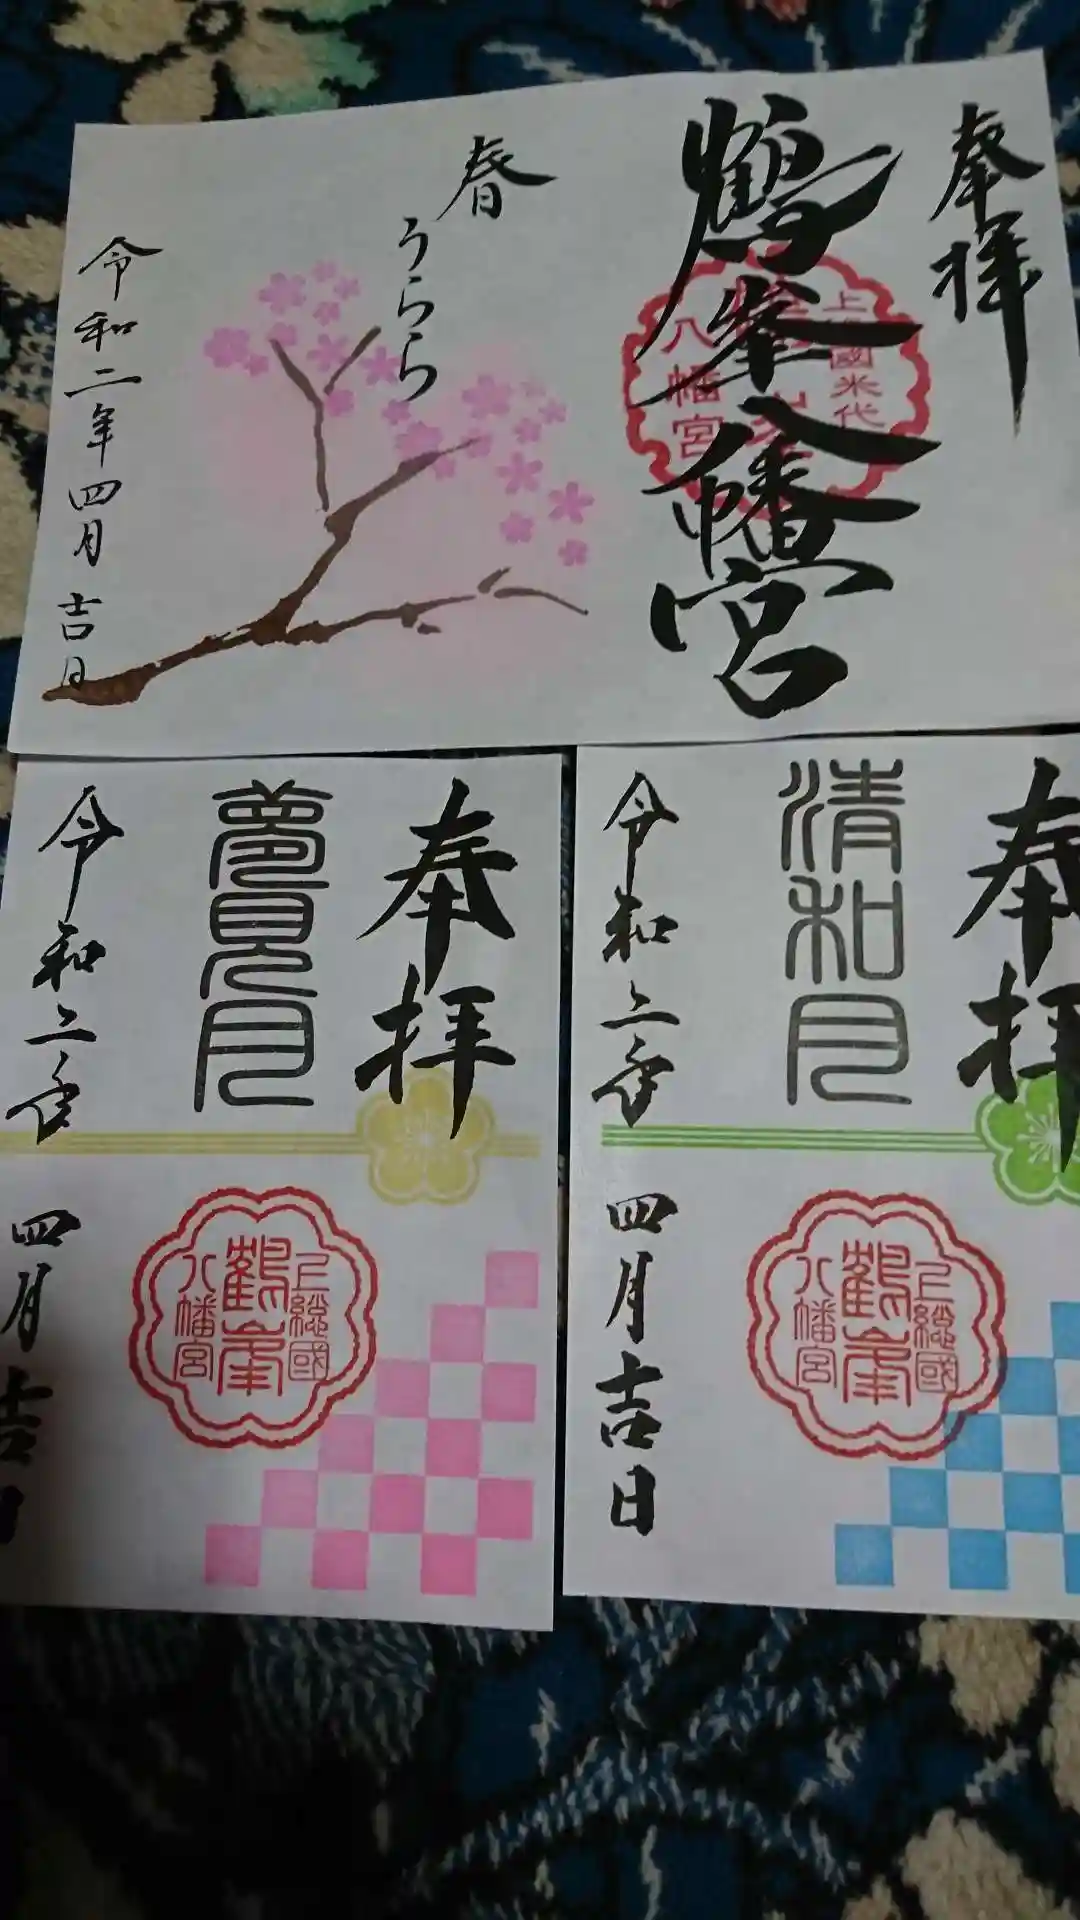 奉拝
鶴峯八幡宮
八幡宮
春
うらら
令和二年四月吉日
奉拝
夢見月
上総國
鶴峯
八幡宮
令和二年
四月吉日
奉拝
清和月
上総國
鶴峯
八幡宮
令和二年
四月吉日